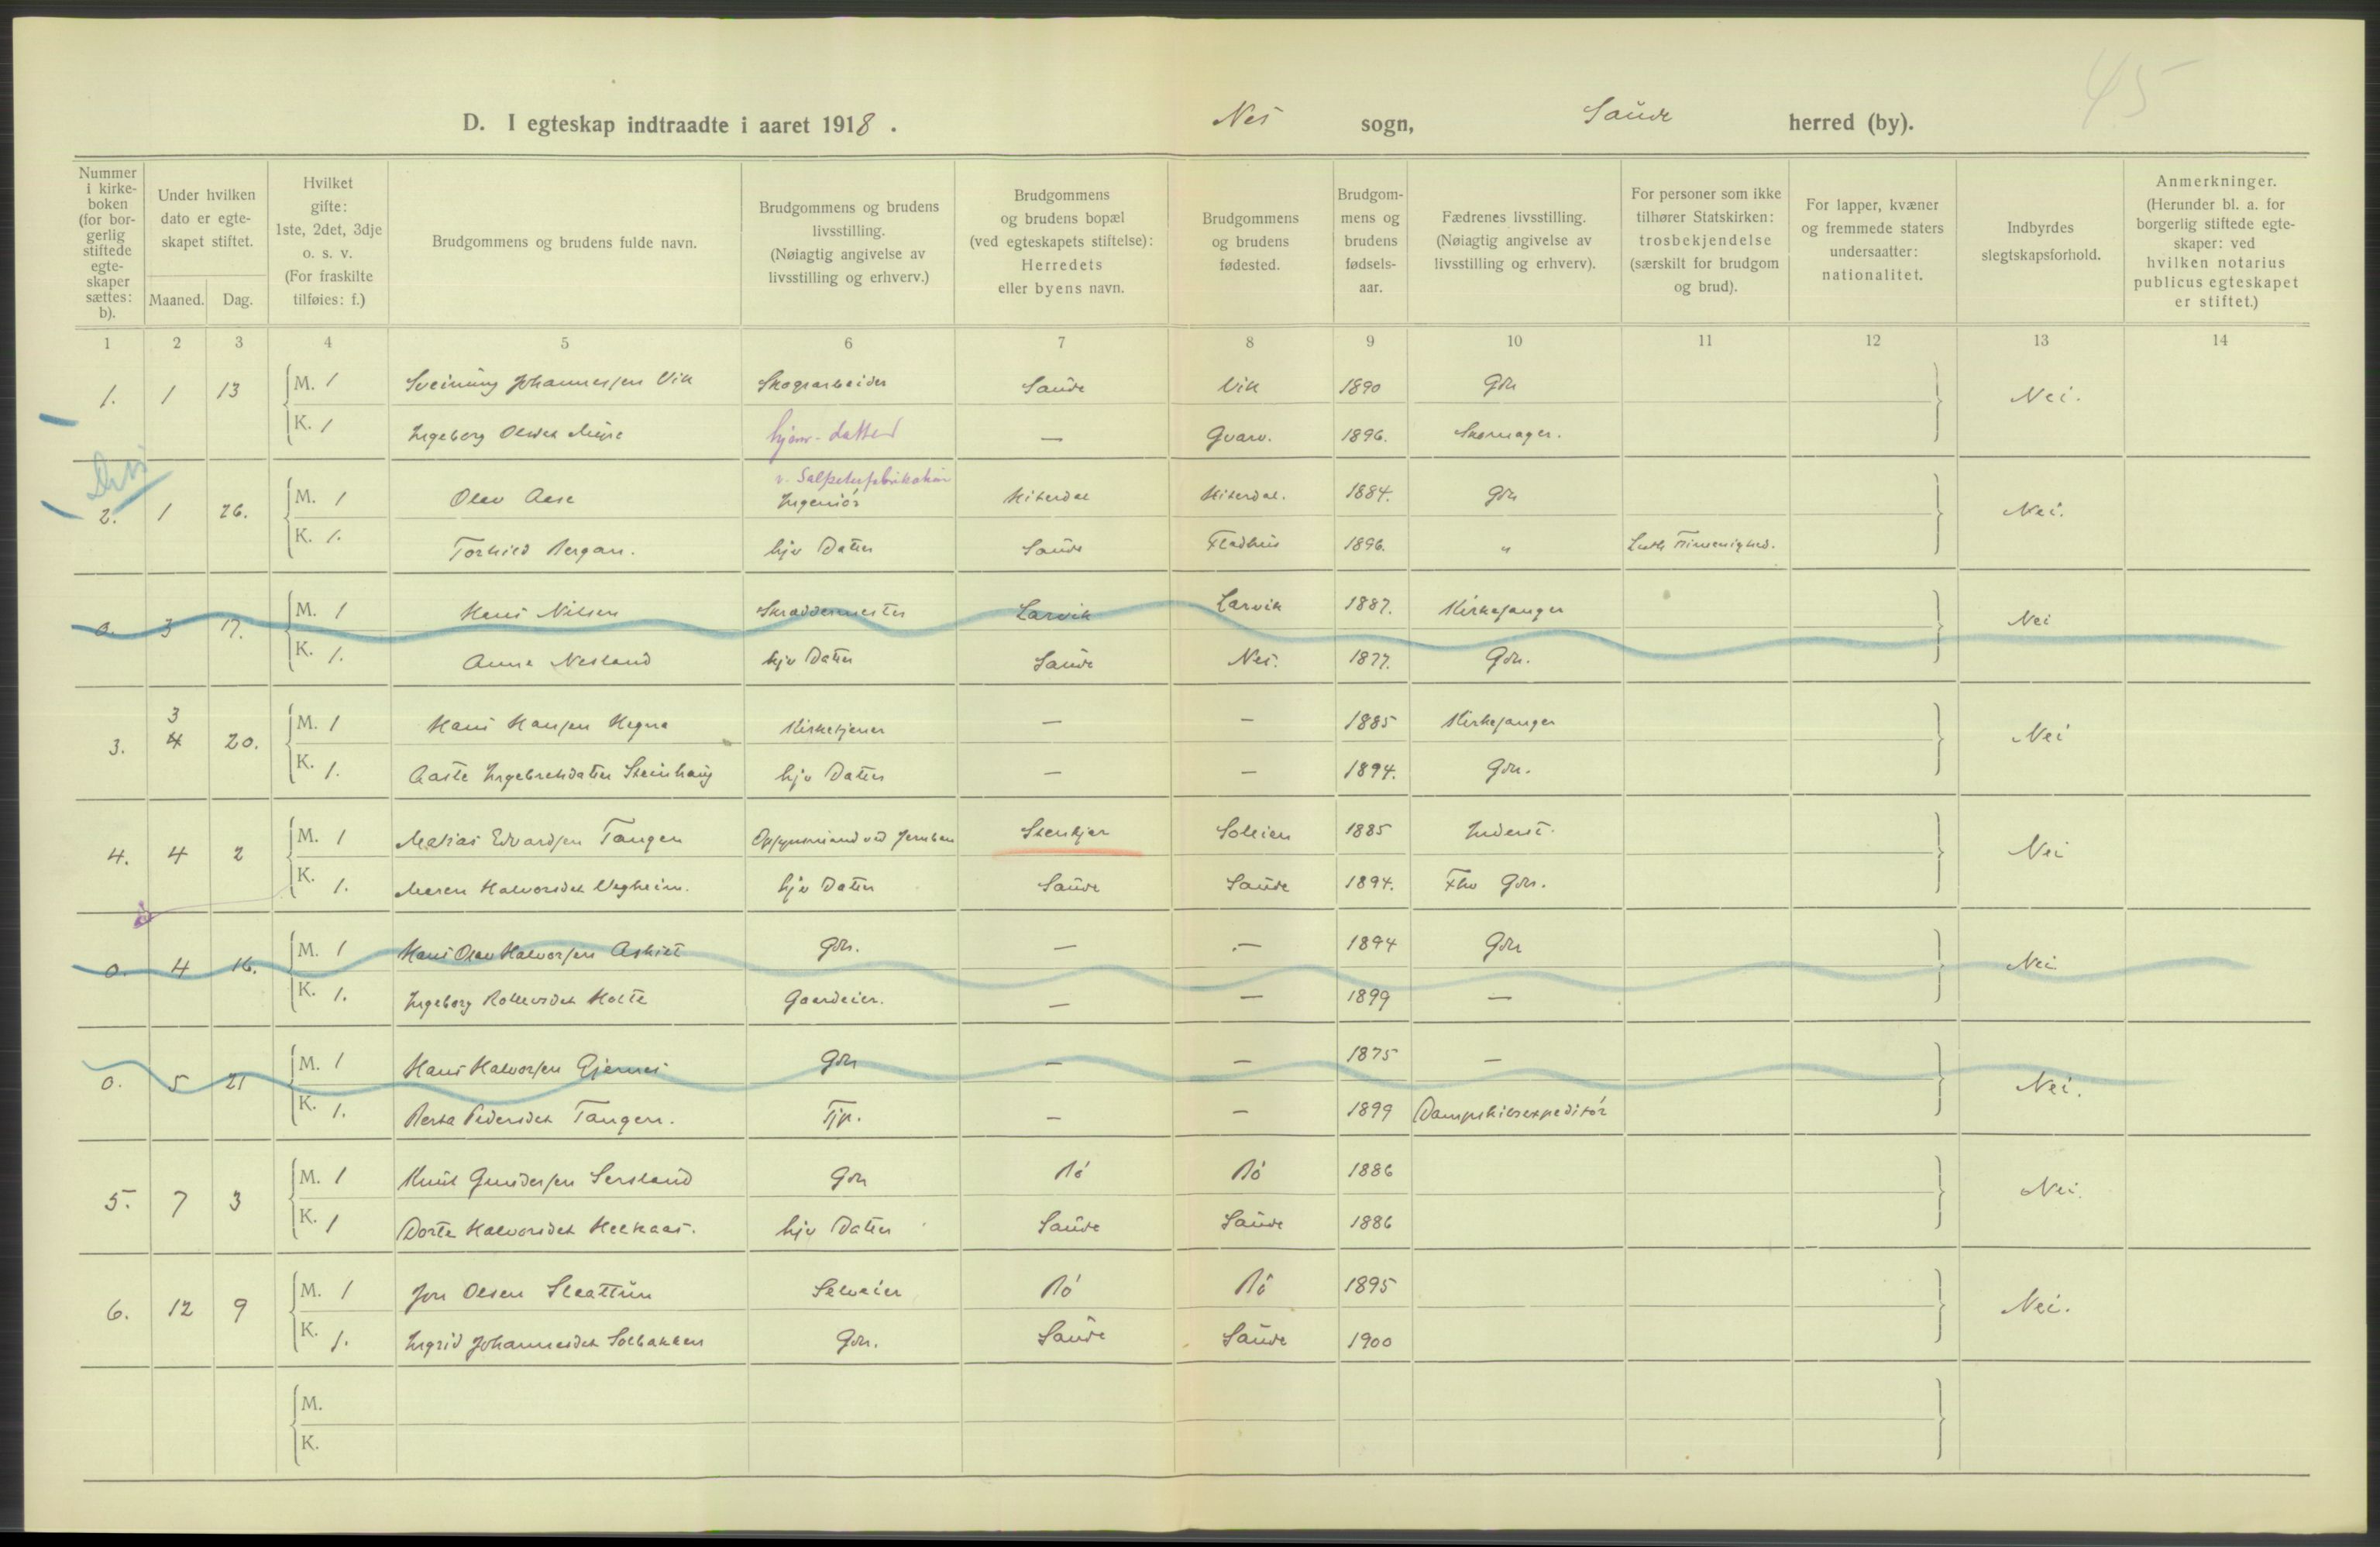 45
D. I egteskap indtraadte i aaret 1918. Nes sogn, Saude herred (by).
Nummer i kirke- boken (for bor- gerlig stiftede egte- skaper sættes: b).
Under hvilken dato er egte- skapet stiftet.
Maaned. Dag.
Hvilket gifte: 1ste, 2det, 3dje o. s. v. (For fraskilte tilføies: f.)
Brudgommens og brudens fulde navn.
Brudgommens og brudens livsstilling. (Nøiagtig angivelse av livsstilling og erhverv.)
Brudgommens og brudens bopæl (ved egteskapets stiftelse): Herredets eller byens navn.
Brudgommens og brudens fødested.
Brudgom- mens og brudens fødsels- aar.
Fædrenes livsstilling. (Nøiagtig angivelse av livsstilling og erhverv).
For personer som ikke tilhører Statskirken: trosbekjendelse (særskilt for brudgom og brud).
For lapper, kvæner og fremmede staters undersaatter: nationalitet.
Indbyrdes slegtskapsforhold.
Anmerkninger. (Herunder bl. a. for borgerlig stiftede egte- skaper: ved hvilken notarius publicus egteskapet er stiftet.)
1 2 3 4 5 6 7 8 9 10 11 12 13 14
1. 1 13 M. 1 Sveinung Johannessen Vik Skogsarbeider Saude Vik 1890 Gbr Nei.
K. 1 Ingeborg Olsdet hjemv. datter — Gvarv. 1896. Skomager.
v. Salpeterfabrikation
2. 1 26. M. 1 Olav Aase Ingeniør Hiterdal Hiterdal. 1884. Gbr Nei.
K. 1. Torhild Bergan. hjv Datter Saude Fladhus 1896. " Luth Frimenighed.
0. 3 17. M. 1 Hans Nilsen Skræddermester Larvik Larvik 1887. Kirkesanger Nei
K. 1. Anne Nesland hjv Datter Saude Nes. 1877. Gbr.
3
3. 4 20. M. 1 Hans Hansen Hegna Kirketjener — — 1885 Kirkesanger Nei
K. 1. Aaste Ingebretsdatter Steinhaug hjv Datter — — 1894. Gbr.
4. 4 2 M. 1 Matias Edvardsen Tangen Opsynsmand ved Jernban Stenkjer Solleien 1885 Inderst. Nei
K. 1. Maren Halvorsdet Vegheim. hjv Datter Saude Saude 1894. Fhv Gbr.
0. 4 16. M. 1 Hans Olav Halvorsen Askilt Gbr. — — 1894 Gbr Nei
K. 1. Ingeborg Rolleivsdet Holte Gaardeier. — — 1899 —
0. 5 21 M. 1 Hans Halvorsen Gjernes Gbr — — 1875 — Nei.
K. 1. Berta Pedersdet Tangen. Tjp. — — 1899 Dampskibsexpeditør
5. 7 3 M. 1 Knut Gundersen Sersland Gbr Bø Bø 1886 Nei.
K. 1 Dorte Halvorsdet Helkaas. hjv Datter Saude Saude 1886
6. 12 9 M. 1 Jon Olsen Slaattun Selveier Bø Bø 1895 Nei.
K. 1. Ingrid Johannesdet Solbakken Gbr. Saude Saude 1900
M.
K.